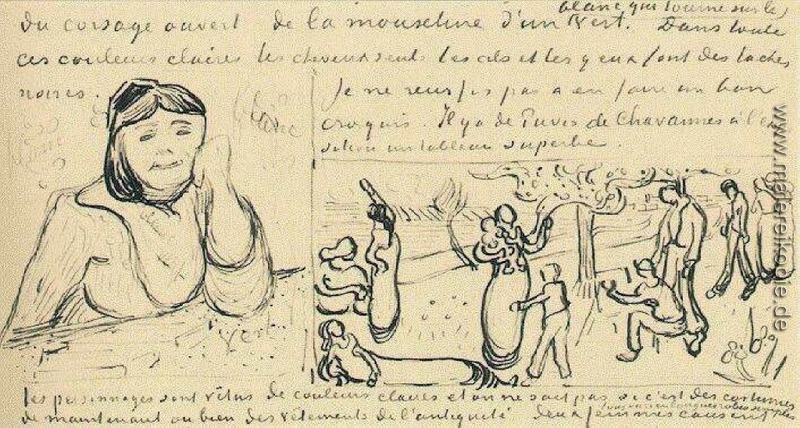 blanc qui tourne sur le
du corsage ouvert de la mousseline d'un vert. Dans toute
ces couleurs claires les cheveux seuls les cils et les yeux font des taches
noires. Je ne reussis pas a en faire un bon
croquis. Il y a de Puvis de Chavannes à l'ex
sition un tableau superbe.
blanc
vert
les personnages sont vêtus de couleurs claires et on ne sait pas si c'est des costumes
de maintenant ou bien des vêtements de l'antiquité deux femmes causent
www.malereikopie.de